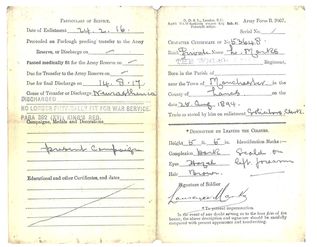 PARTICULARS OF SERVICE.
Date of Enlistment 24.2.16.
Proceeded on Furlough pending transfer to the Army
Reserve, or Discharge on
Passed medically fit for the Army Reserve on
Due for Transfer to the Army Reserve on
Due for final Discharge on 14.8.17
Cause of Transfer or Discharge Neurasthenia
DISCHARGED
NO LONGER PHYSICALLY FIT FOR WAR SERVICE.
PARA 392 (XVI) KING'S REG.
Campaigns, Medals and Decorations
present Campaign
Educational and other Certificates, and dates
Army Form B. 2067.
Serial No.
CHARACTER CERTIFICATE of No.
Rank Private L. Marks
Regiment.
Born in the Parish of
near the Town of Manchester in the
County of Lancs
on the date of 1894.
Trade as stated by him on enlistment
*DESCRIPTION ON LEAVING THE COLOURS.
Height 5 ft. Identification Marks:
Complexion Dark Scald on
Eyes Hazel left forearm
Hair Brown
Signature of Soldier
Lawrence Marks
*To prevent impersonation.
In the event of any doubt arising as to the bona fides of the
bearer, the above description and signature should be carefully
compared with present appearance and handwriting.